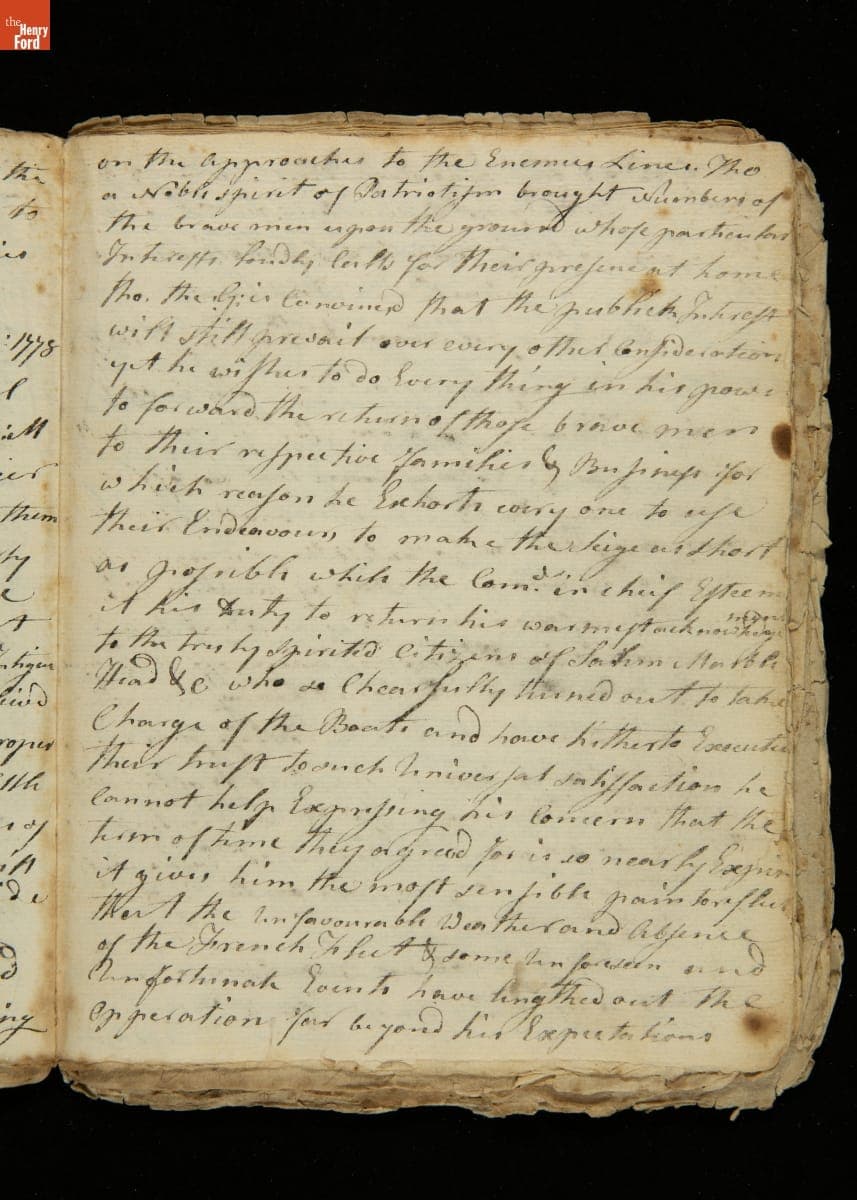 the
Henry
Ford
the
to
: 1778
them
on the approaches to the Enemies Lines. Tho
a Noble spirit of Patriotism brought Numbers of
the brave men upon the ground whose particular
Interests loudly Calls for their presene at home
tho. the Convinced that the publick Interest
will still prevail over every other Consideration
yet he wishes to do Every thing in his powe
to forward the return of those brave men
to their respective families & Business for
which reason he Exhorts every one to use
their Endeavours to make the Seige as short
as possible while the Comd. in chief Esteem
it his duty to return his warmest acknowledge
ments
to the truly spirited Citizens of Salem Marble
Head &c who so Chearfully turned out to take
Charge of the Boats and have hitherto Execute
their trust to such Universal satisfaction he
Cannot help Expressing his Concern that the
term of time they agreed for is so nearly Expir
it gives him the most sensible pain to reflect
that the Unfavourable Weather and Absence
of the French Fleet & some Unforeseen and
Unfortunate Events have lengthed out the
Opperation far beyond his Expectations